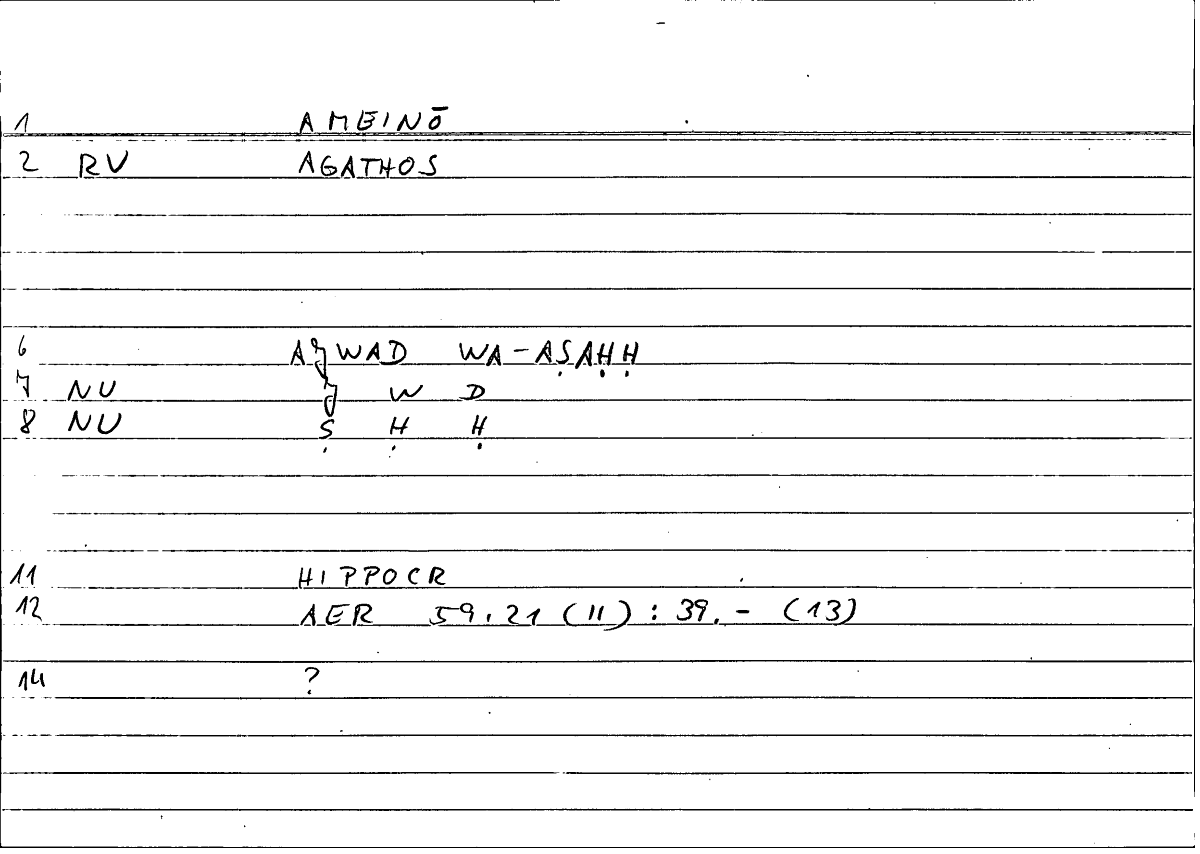 1 AMEINŌ
2 RV AGATHOS
6 AǧWAD WA-AṢAḤḤ
7 NU ǧ W D
8 NU Ṣ Ḥ Ḥ
11 HIPPOCR
12 AER 59.21 (11) : 39.- (13)
14 ?